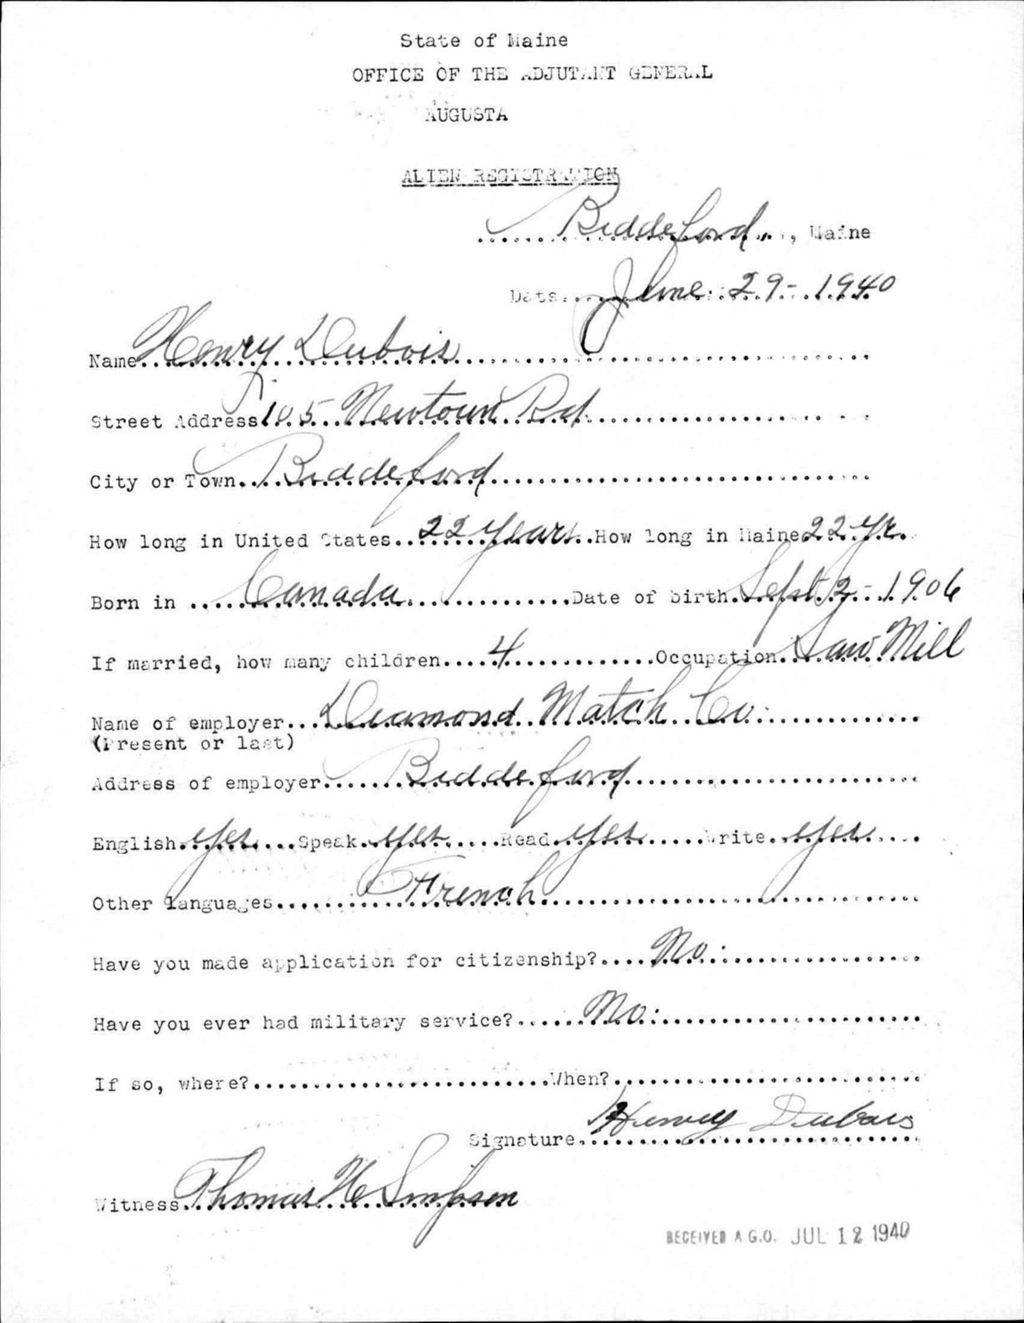 State of Maine
OFFICE OF THE ADJUTANT GENERAL
AUGUSTA
ALIEN REGISTRATION
Biddeford, Maine
Date June 29-1940
Name Henry Dubois
Street Address 105 Newtown Rd
City or Town Biddeford
How long in United States 22 years How long in Maine 22 yr.
Born in Canada Date of birth Sept 2-1906
If married, how many children 4 Occupation Saw Mill
Name of employer Diamond Match Co.
(Present or last)
Address of employer Biddeford
English yes Speak yes Read yes Write yes
Other languages French
Have you made application for citizenship? No.
Have you ever had military service? No.
If so, where? When?
Signature Dubois
Witness Thomas H Simpson
RECEIVED A.G.O. JUL 12 1940